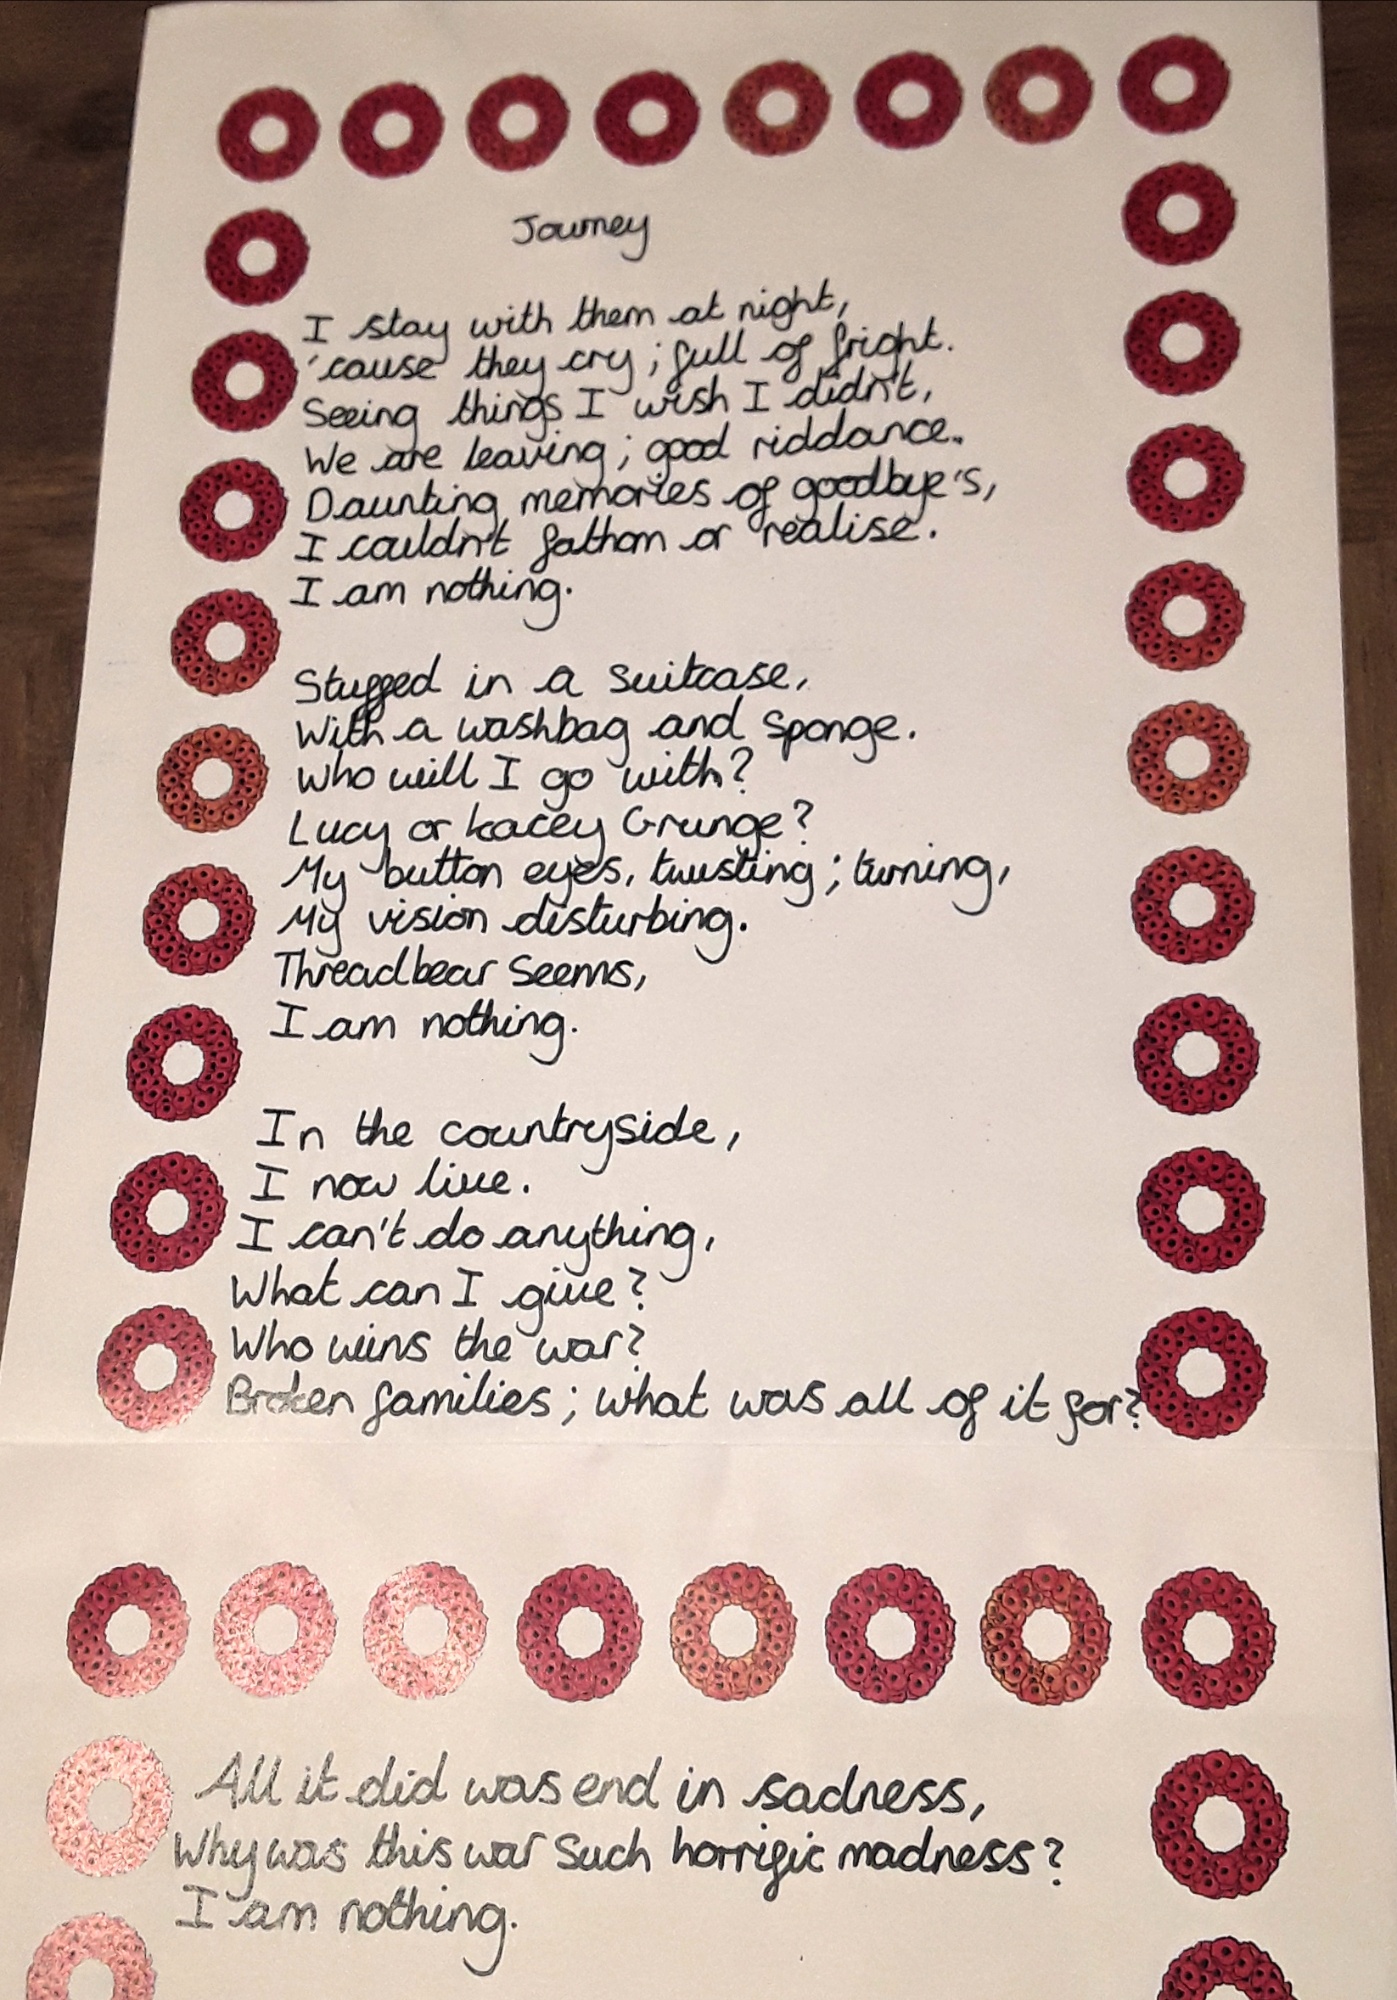 Journey
I stay with them at night,
'cause they cry ; full of fright.
Seeing things I wish I didn't,
We are leaving ; good riddance.
Daunting memories of goodbye's,
I couldn't fathom or realise.
I am nothing.
Stuffed in a suitcase,
With a washbag and sponge.
Who will I go with?
Lucy or Kacey Grunge?
My button eyes, twisting ; turning,
My vision disturbing.
Threadbear seems,
I am nothing.
In the countryside,
I now live.
I can't do anything,
What can I give?
Who wins the war?
Broken families ; what was all of it for?
All it did was end in sadness,
Why was this war such horrific madness?
I am nothing.